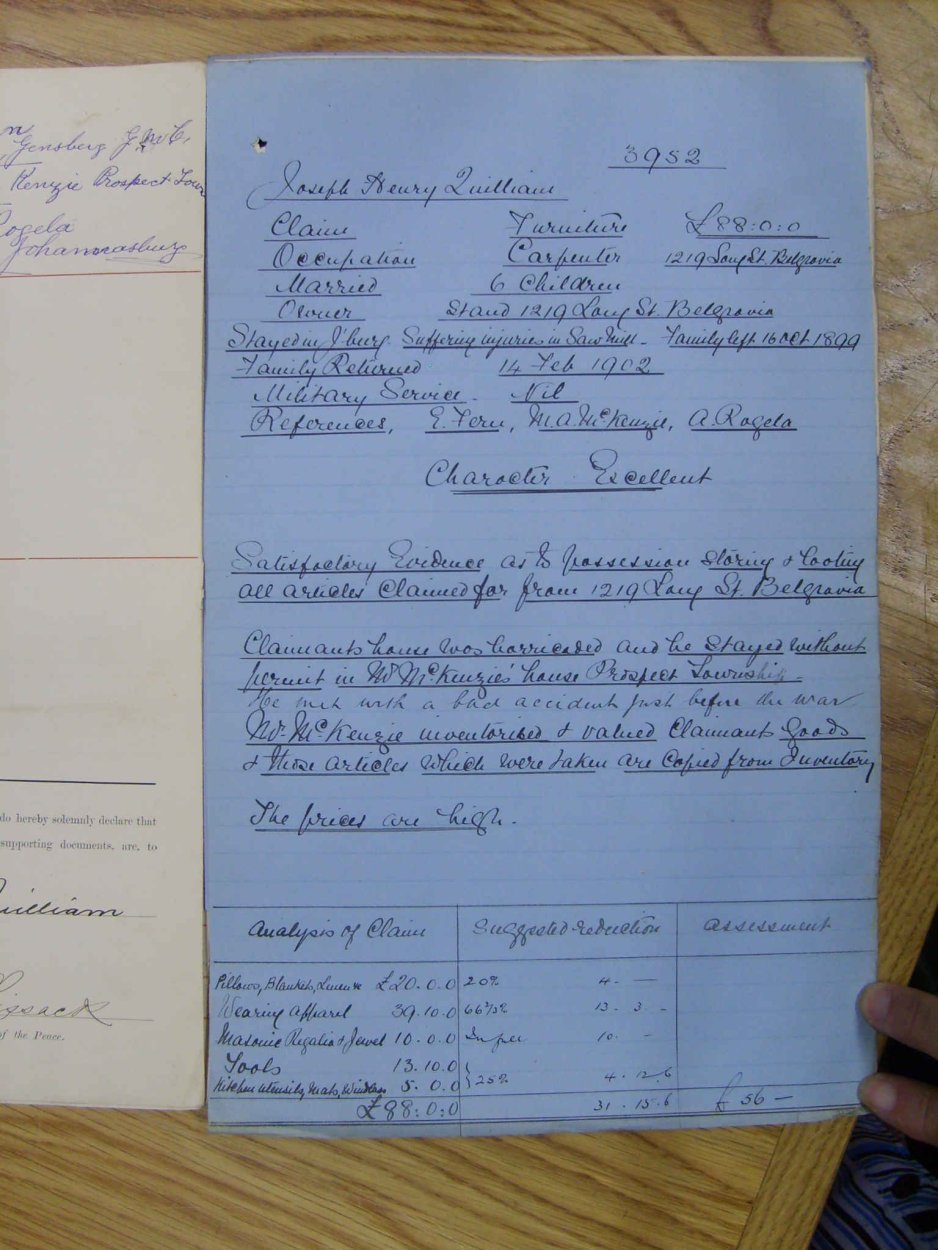 Gensberg J.M.C.
Kenzie Prospect Town
Rogela
Johannesburg
do hereby solemnly declare that
supporting documents, are, to
uilliam
of the Peace.
3952
Joseph Henry Quilliam
Claim Furniture £88:0:0
Occupation Carpenter 1219 Long St. Belgravia
Married 6 Children
Owner Stand 1219 Long St. Belgravia
Stayed in J'burg. Suffering injuries in Saw Mill - Family left 16 Oct 1899
Family Returned 14 Feb 1902
Military Service. Nil
References, E. Fern, M.A. McKenzie, A. Rogela
Character Excellent
Satisfactory Evidence as to possession storing & looting
all articles Claimed for from 1219 Long St. Belgravia
Claimants house was barricaded and he stayed without
permit in Mr McKenzie's house Prospect Township.
He met with a bad accident just before the war
Mr. McKenzie inventorised & valued Claimants goods
& those articles which were taken are copied from Inventory
The prices are high.
Analysis of Claim Suggested reduction assessment
Pillows, Blankets, Linen &c £20.0.0 20% 4. —
Wearing apparel 39.10.0 13. 3 -
Masonic Regalia & Jewel 10.0.0 10. -
Tools 13.10.0
Kitchen utensils, Mats, 5.0.0 25% 4.12.6
£88:0:0 31.15.6 £56 —